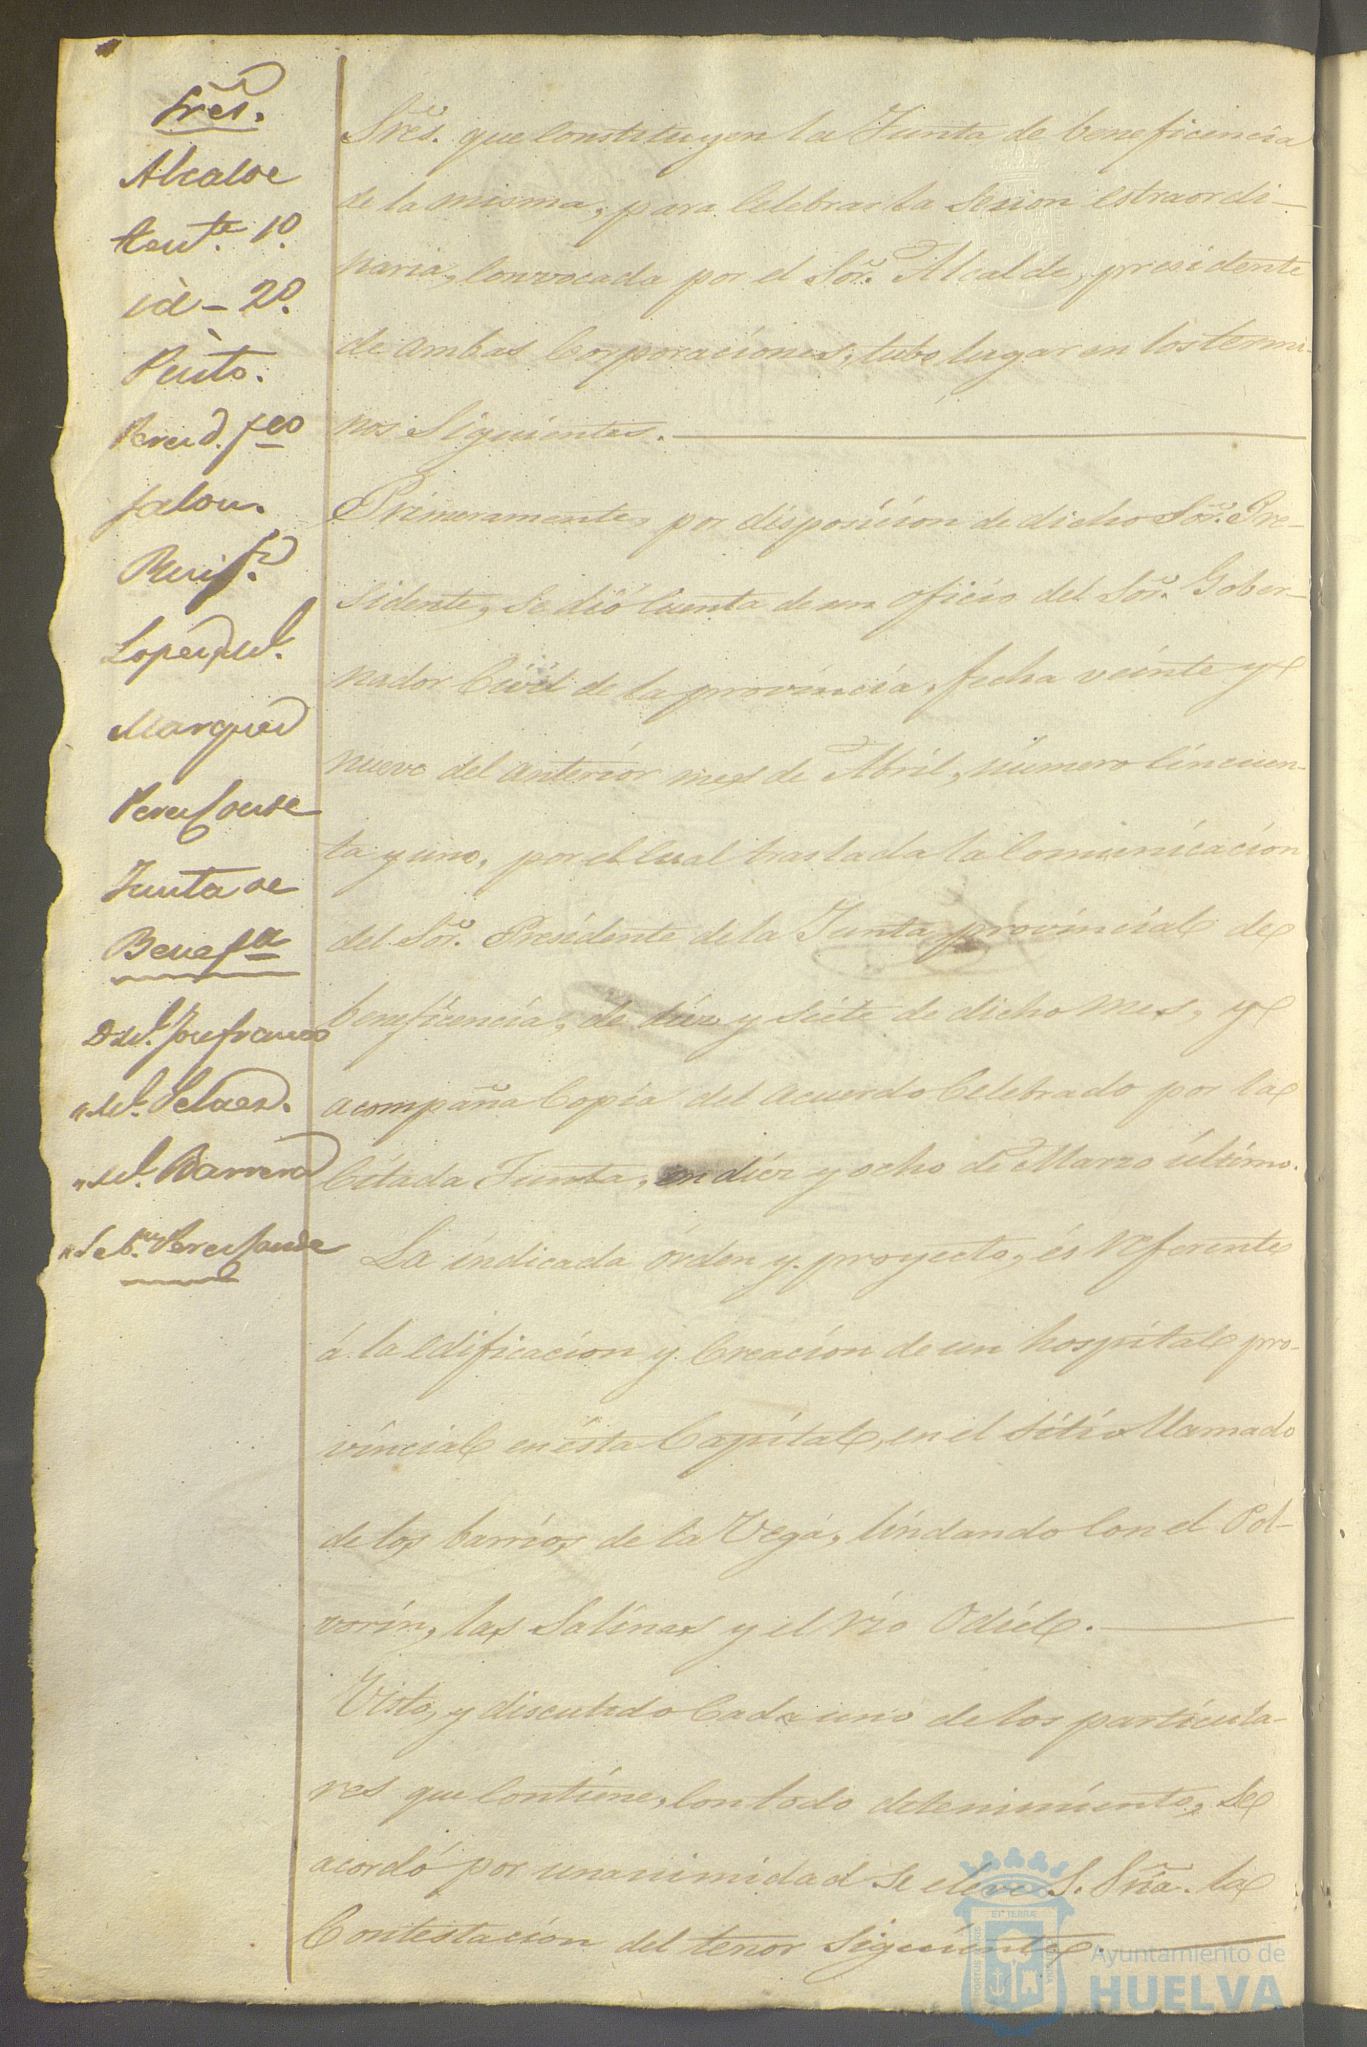 Sres.
Alcalde
tente. 1º.
id - 2º.
Perez d. fco
Jalon.
Marquez
Junta de
Benefa
Sres. que Constituyen la Junta de beneficencia
de la misma, para Celebrar la Sesion estraordi-
naria, Convocada por el Sor. Alcalde, presidente
de ambas Corporaciones, tubo lugar en los termi-
nos Siguientes.
Primeramente, por disposicion de dicho Sor. Pre-
sidente, Se dió Cuenta de un oficio del Sor. Gober-
nador Civil de la provincia, fecha veinte y
nueve del anterior mes de Abril, número Cincuen-
ta y uno, por el Cual traslada la Comunicacion
del Sor. Presidente de la Junta provincial de
beneficencia, de diez y siete de dicho mes, y
acompaña Copia del acuerdo Celebrado por la
Citada Junta, en diez y ocho de Marzo último.
La indicada órden y proyecto, és referente
á la edificacion y Creacion de un hospital pro-
vincial en ésta Capital, en el Sitio llamado
de los barrios de la Vega, lindando Con el Pol-
vorin, las Salinas y el rio Odiel.
Visto, y discutido Cada uno de los particula-
res que Contiene, Con todo detenimiento, se
acordó por unanimidad se eleve S. Sria. la
Contestacion del tenor Siguiente.
"M. Barrera
Ayuntamiento de
HUELVA